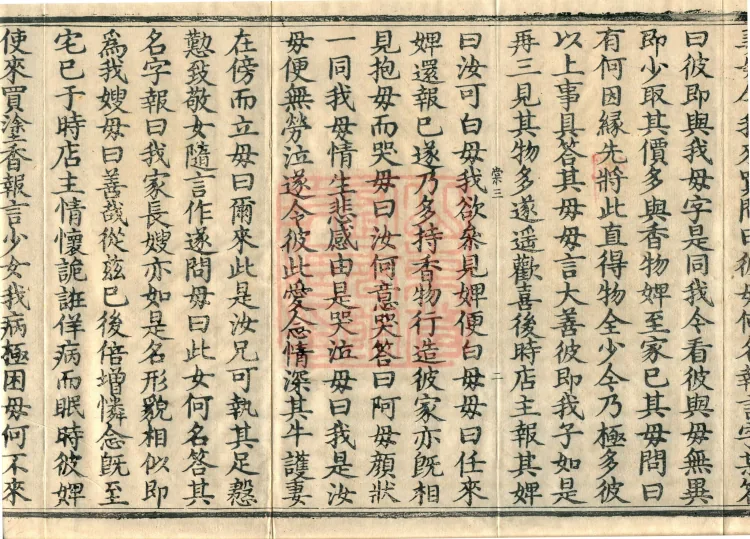 曰彼即與我毋字是同我今看彼與毋無異
即少取其價多與香物婢至家已其毋問曰
有何因緣先將此直得物全少今乃極多彼
以上事具答其毋毋言大善彼即我子如是
再三見其物多遂遥歡喜後時店主報其婢
棠三 二
曰汝可白毋我欲叅見婢便白毋毋曰任來
婢還報已遂乃多持香物行造彼家亦旣相
見抱毋而哭毋曰汝何意哭答曰阿毋顔狀
一同我毋情生悲感由是哭泣毋曰我是汝
毋便無勞泣遂令彼此愛念情深其牛護妻
在傍而立毋曰爾來此是汝兄可執其足慇
懃致敬女隨言作遂問毋曰此女何名答其
名字報曰我家長嫂亦如是名形貌相似即
爲我嫂毋曰善哉從兹已後倍增憐念旣至
宅已于時店主情懷詭誑佯病而眠時彼婢
使來買塗香報言少女我病極困毋何不來